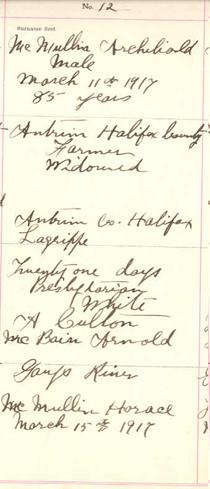 No. 12
Surname first
Mc Mullin Archibald
Male
March 11th 1917
85 years
Antrim Halifax County
Farmer
Widowed
Antrim Co. Halifax
Lagrippe
Twenty one days
Presbyterian
White
A Cullon
Mc Bain Arnold
Gays River
Mc Mullin Horace
March 15th 1917